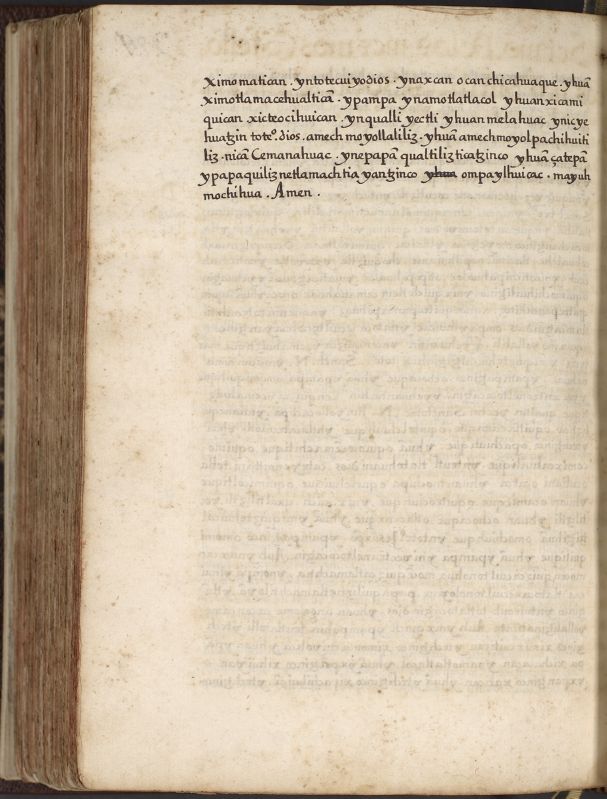 ximomatican . yntotecuiyo dios . ynaxcan ocan chicahuaque . yhuā
ximotlamacehualticā . ypampa ynamotlatlacol yhuan xicami
quican xicteocihuican . ynqualli yectli yhuan melahuac ynicye
huatzin toteº. dios . amechmoyollaliliz . yhuā amechmoyolpachihuiti
liz . nicā Cemanahuac . ynepapā qualtilizticatzinco yhuā çatepā
ypapaquiliznetlamachtiayantzinco yhua ompa ylhuicac . mayuh
mochihua . Amen .